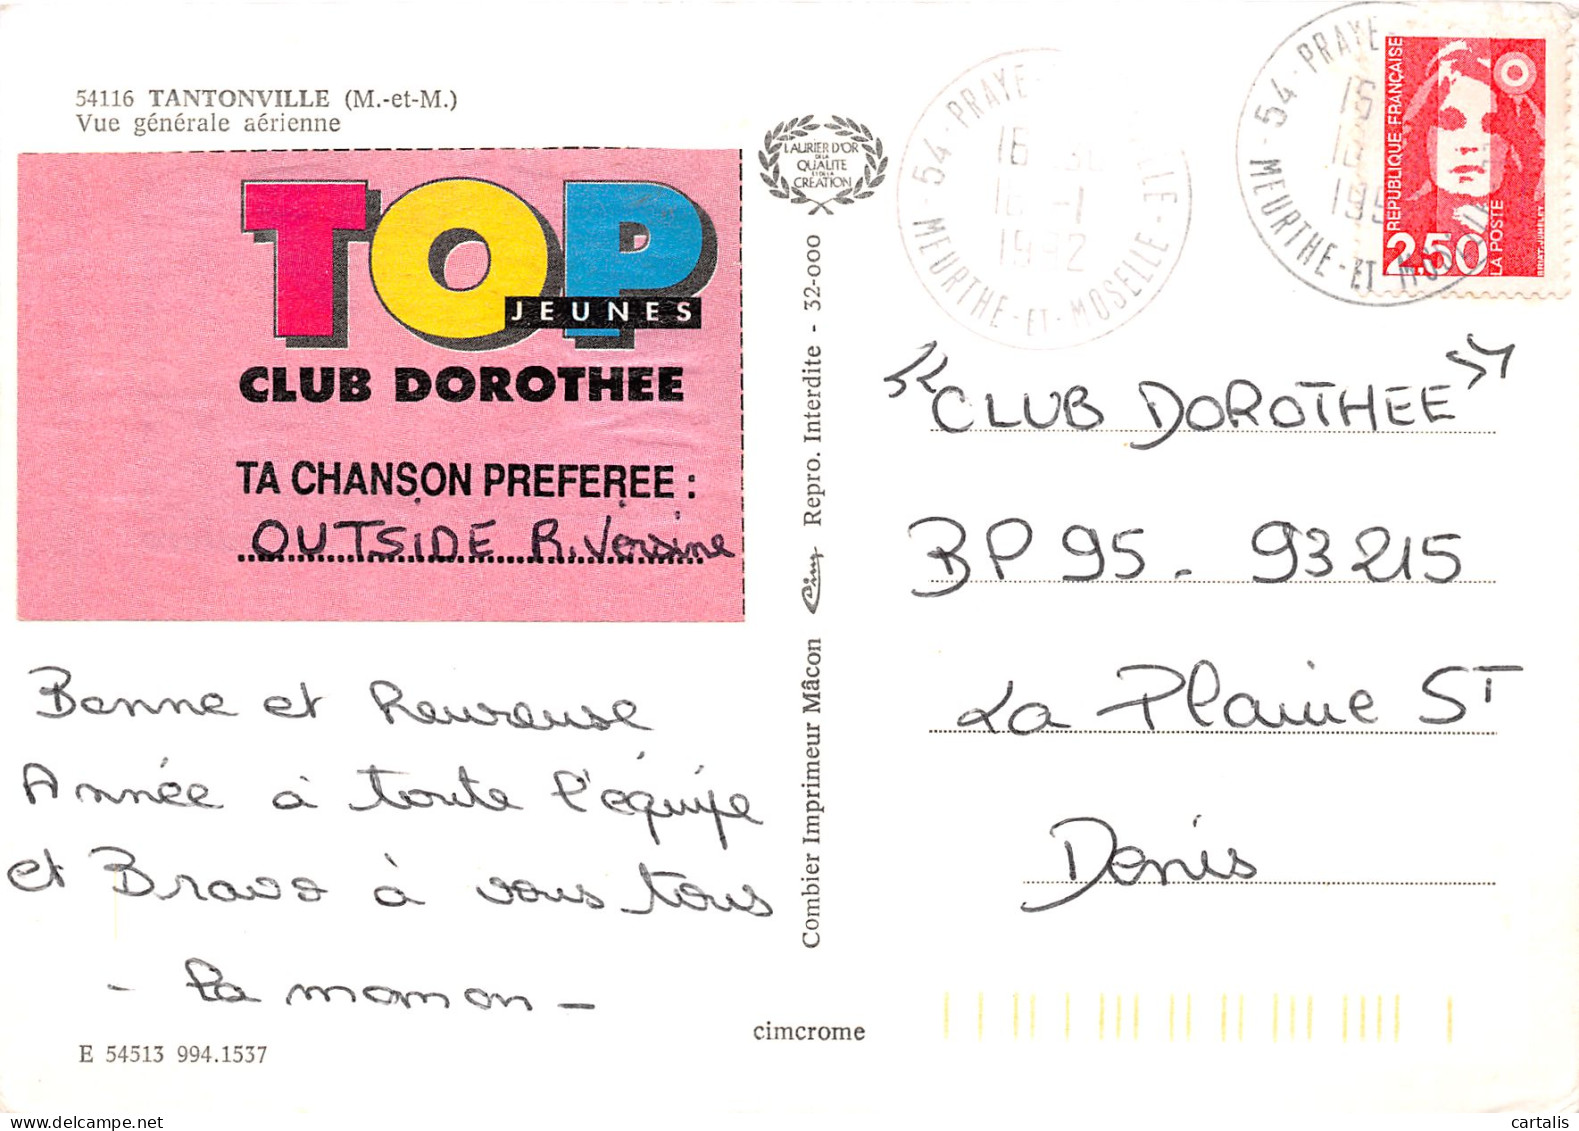 54116 TANTONVILLE (M.-et-M.)
Vue générale aérienne
TOP
JEUNES
CLUB DOROTHEE
TA CHANSON PREFEREE :
OUTSIDE R. Versine
Bonne et heureuse
Année à toute l'équipe
et Bravo à vous tous
- La maman -
E 54513 994.1537
cimcrome
LAURIER D'OR
DE LA
QUALITE
ET DE LA
CREATION
Combier Imprimeur Mâcon Cim Repro. Interdite - 32-000
54 - PRAYE
16
16 -1
1992
MEURTHE-ET-MOSELLE
54 - PRAYE
16
MEURTHE-ET-MOSELLE
REPUBLIQUE FRANÇAISE
2,50
LA POSTE
"CLUB DOROTHEE"
BP 95 - 93215
La Plaine ST
Denis
cartalis